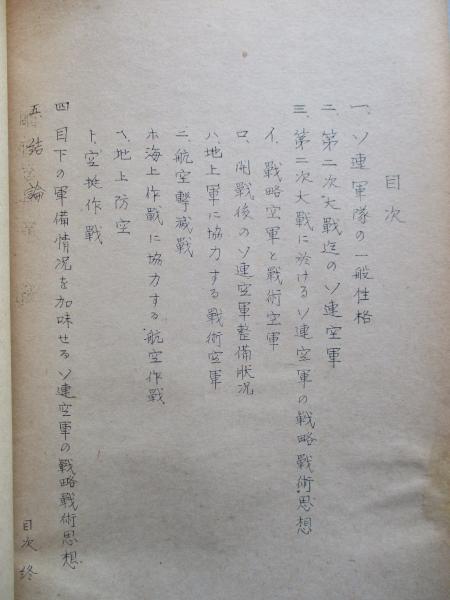 目次
一、ソ連軍隊の一般性格
二、第二次大戰迄のソ連空軍
三、第二次大戰に於けるソ連空軍の戰略戰術思想
イ、戰略空軍と戰術空軍
ロ、開戰後のソ連空軍整備狀況
ハ、地上軍に協力する戰術空軍
ニ、航空撃滅戰
ホ、海上作戰に協力する航空作戰
ヘ、地上防空
ト、空挺作戰
四、目下の軍備情況を加味せるソ連空軍の戰略戰術思想
五、結論
目次終